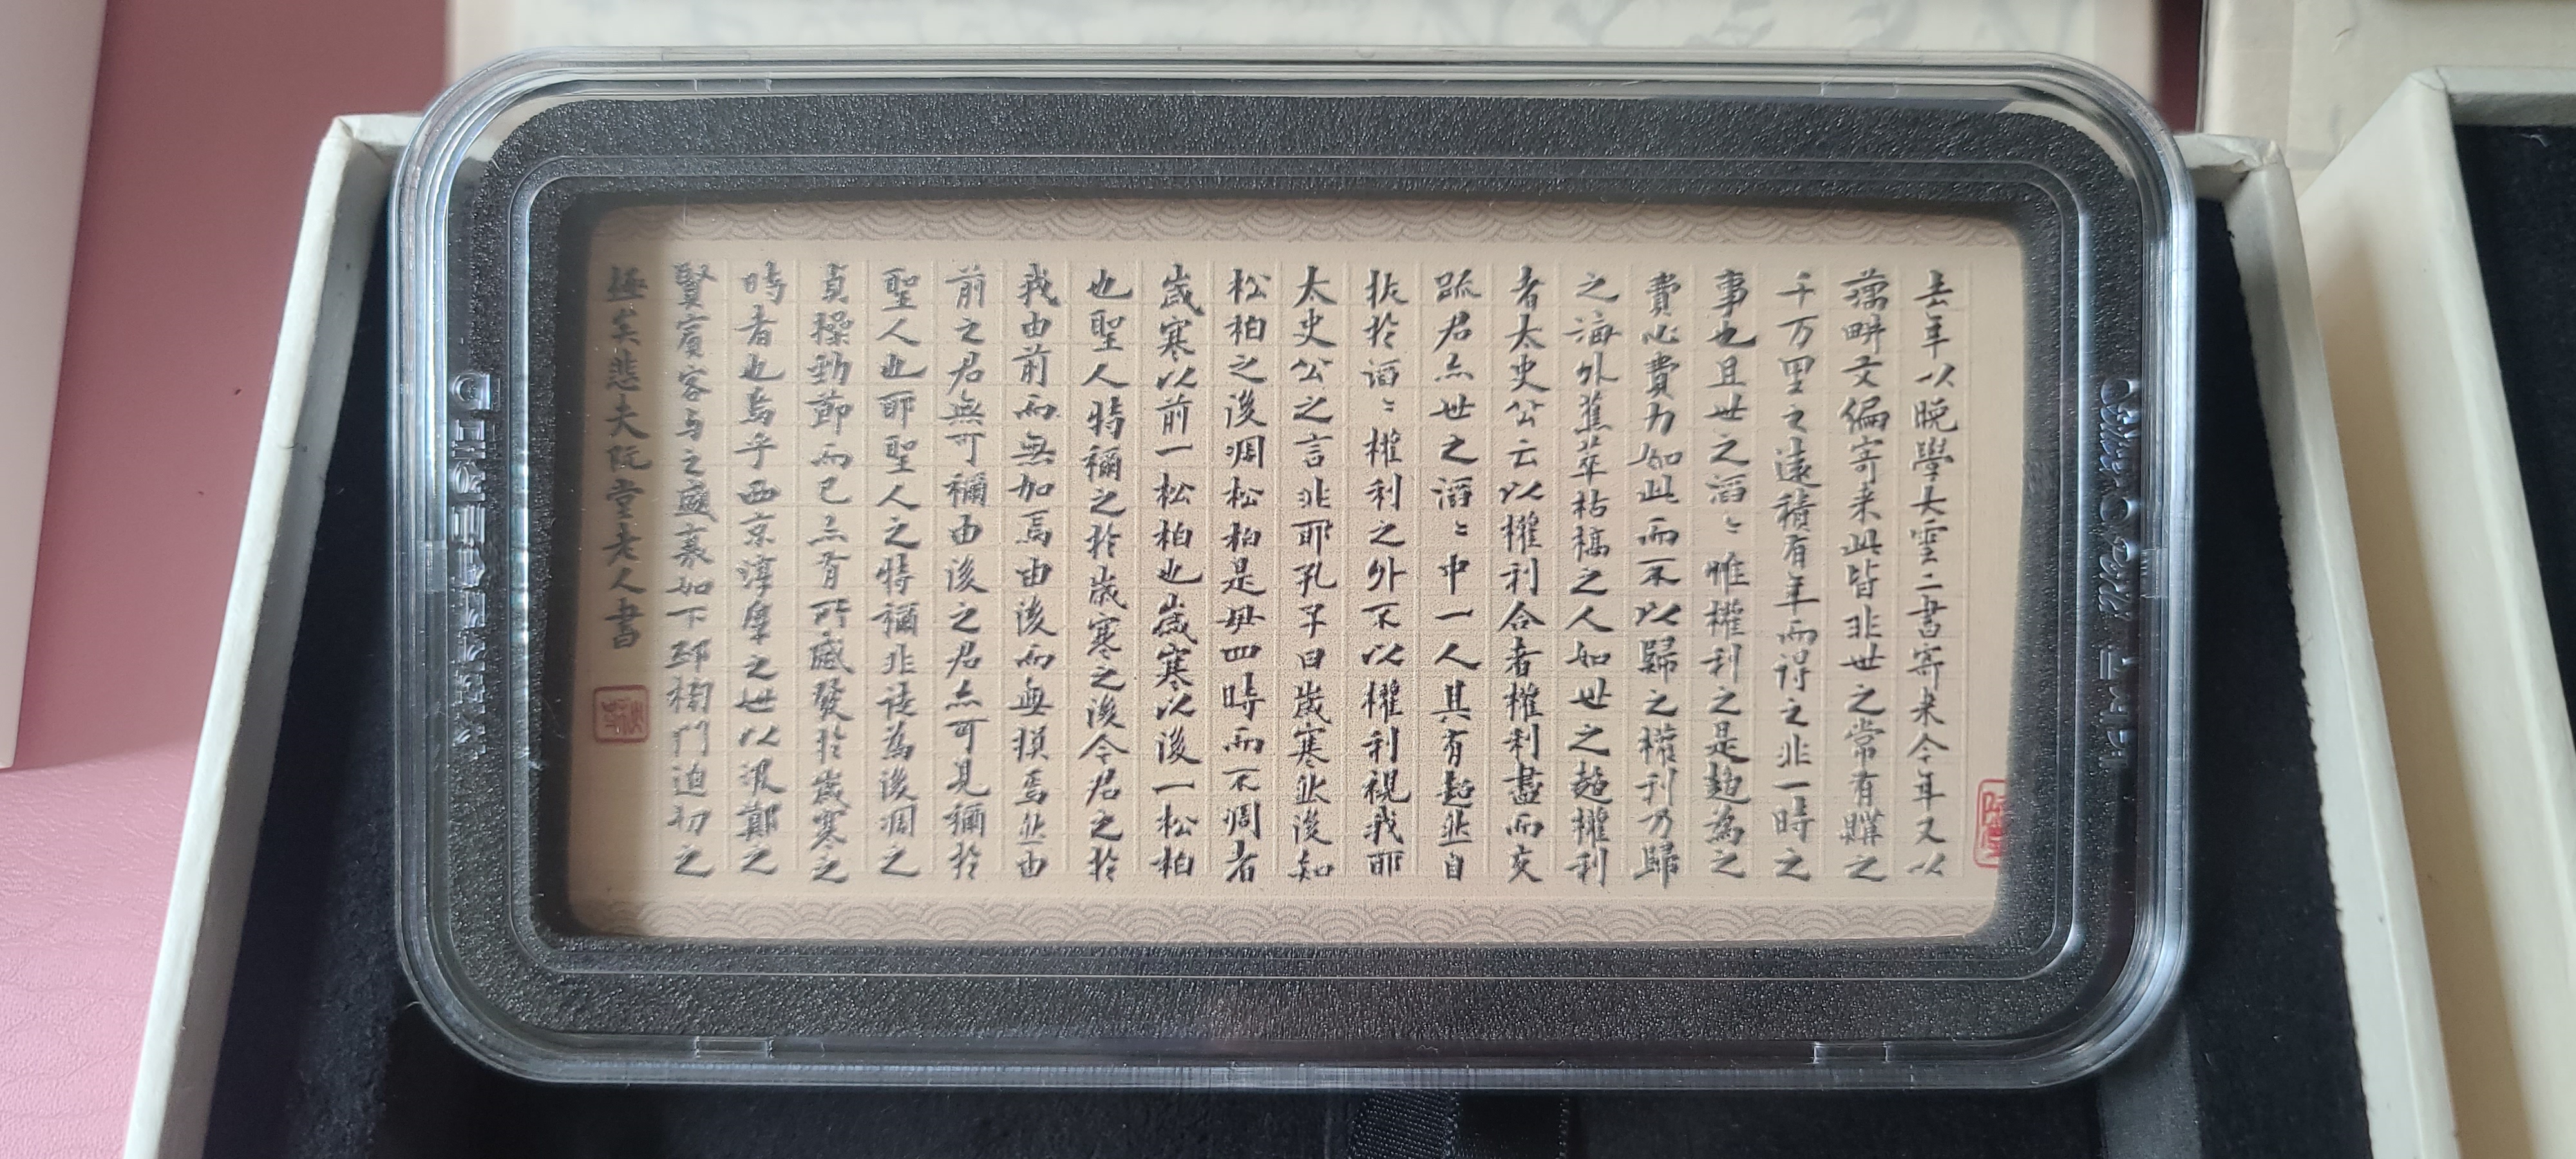 去年以晚學大雲二書寄来今年又以
藕畊文偏寄来此皆非世之常有購之
千万里之遠積有年而得之非一時之
事也且世之滔〻惟權利之是趨為之
費心費力如此而不以歸之權利乃歸
之海外蕉萃枯稿之人如世之趨權利
者太史公云以權利合者權利盡而交
踈君亦世之滔〻中一人其有超然自
拔於滔〻權利之外不以權利視我耶
太史公之言非耶孔子曰歲寒然後知
松柏之後凋松柏是毋四時而不凋者
歲寒以前一松柏也歲寒以後一松柏
也聖人特稱之於歲寒之後今君之於
我由前而無加焉由後而無損焉然由
前之君無可稱由後之君亦可見稱於
聖人也耶聖人之特稱非徒為後凋之
貞操勁節而已亦有所感發於歲寒之
時者也烏乎西京淳厚之世以汲鄭之
賢賓客与之盛衰如下邳榜門迫切之
極矣悲夫阮堂老人書
阮堂